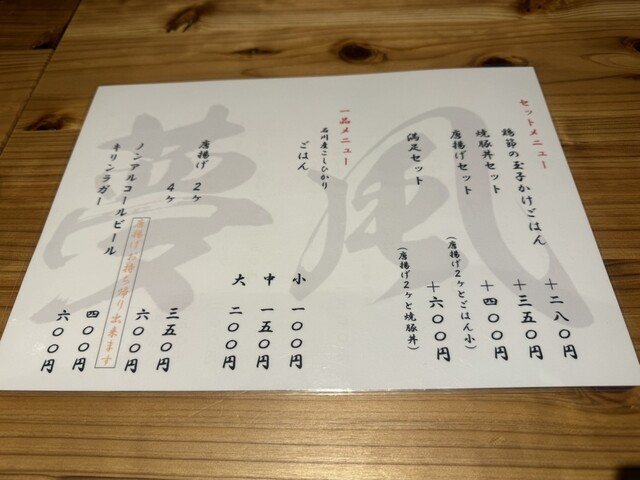 セットメニュー
鶏節の玉子かけごはん ＋二八〇円
焼豚丼セット ＋三五〇円
唐揚げセット ＋四〇〇円
(唐揚げ2ヶとごはん小)
満足セット ＋六〇〇円
(唐揚げ2ヶと焼豚丼)
一品メニュー
石川産こしひかり
ごはん
小 一〇〇円
中 一五〇円
大 二〇〇円
唐揚げ 2ヶ 三五〇円
4ヶ 六〇〇円
唐揚げお持ち帰り出来ます
ノンアルコールビール 四〇〇円
キリンラガー 六〇〇円
風夢